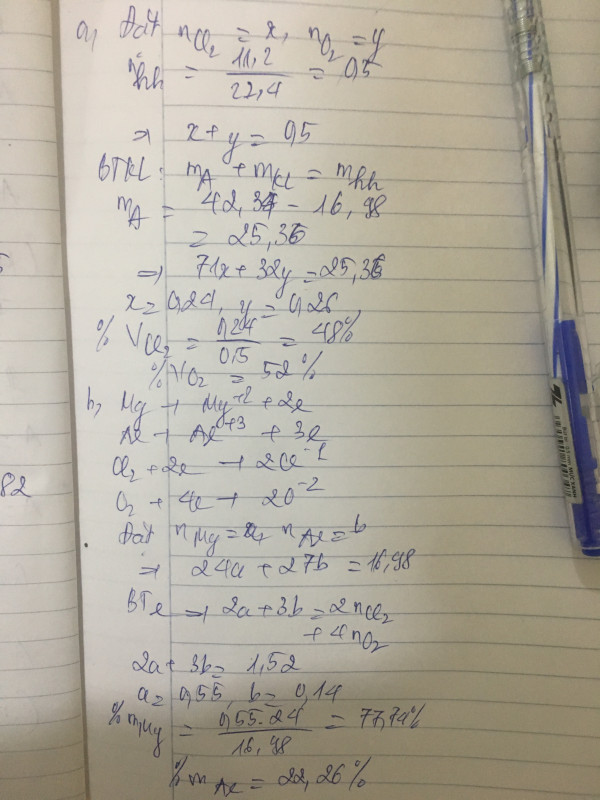 a, Đặt nCl2 = x, nO2 = y
nhh = 11,2 / 22,4 = 0,5
=> x + y = 0,5
BTKL: mA + mKL = mhh
mA = 42,34 - 16,98
= 25,36
=> 71x + 32y = 25,36
x = 0,24, y = 0,26
% VCl2 = 0,24 / 0,5 = 48%
% VO2 = 52%
b, Mg → Mg+2 + 2e
Al → Al+3 + 3e
Cl2 + 2e → 2Cl-1
O2 + 4e → 2O-2
82
Đặt nMg = a, nAl = b
=> 24a + 27b = 16,98
BTe => 2a + 3b = 2nCl2
+ 4nO2
2a + 3b = 1,52
a = 0,55, b = 0,14
% mMg = 0,55.24 / 16,98 = 77,74%
% mAl = 22,26%